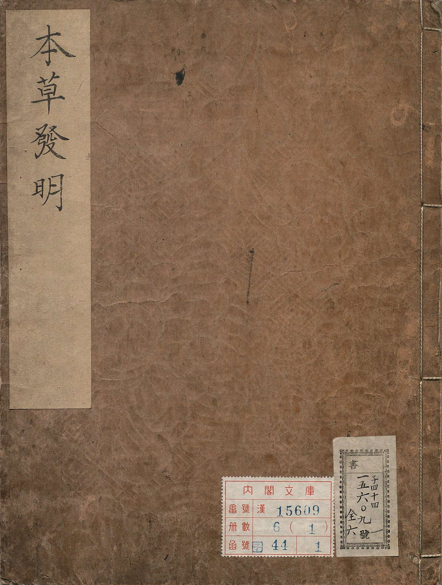 本草發明
內閣文庫
番號 漢 15609
冊數 6 (1)
函號 子 44 1
書
子四十四
一五六〇九號
全六
一